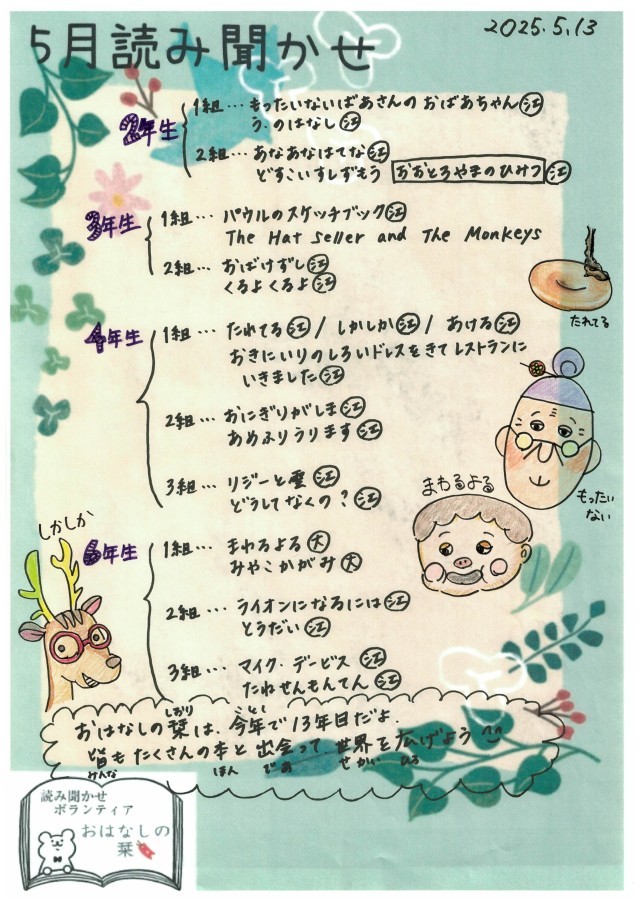 5月読み聞かせ
2025.5.13
2年生
1組… もったいないばあさんの おばあちゃん㋓
う.のはなし㋓
2組… あなあなはてな㋓
どすこいすしずもう おおとろやまのひみつ㋓
3年生
1組… パウルのスケッチブック㋓
The Hat Seller and The Monkeys
2組… おばけずし㋓
くるよくるよ㋓
たれてる
4年生
1組… たれてる㋓ / しかしか㋓ / あける㋓
おきにいりのしろいドレスをきてレストランに
いきました㋓
2組… おにぎりがしま㋓
あめふりうります㋓
3組… リジーと雲㋓
どうしてなくの?㋓
もったい
ない
まわるよる
しかしか
6年生
1組… まわるよる 大
みやこかがみ 大
2組… ライオンになるには㋓
とうだい㋓
3組… マイク・デービス㋓
たねせんもんてん㋓
しおり ことし
おはなしの栞は、今年で13年目だよ.
皆も たくさんの本と 出会って、世界を広げよう
みんな ほん であ せかい ひろ
読み聞かせ
ボランティア
おはなしの
栞